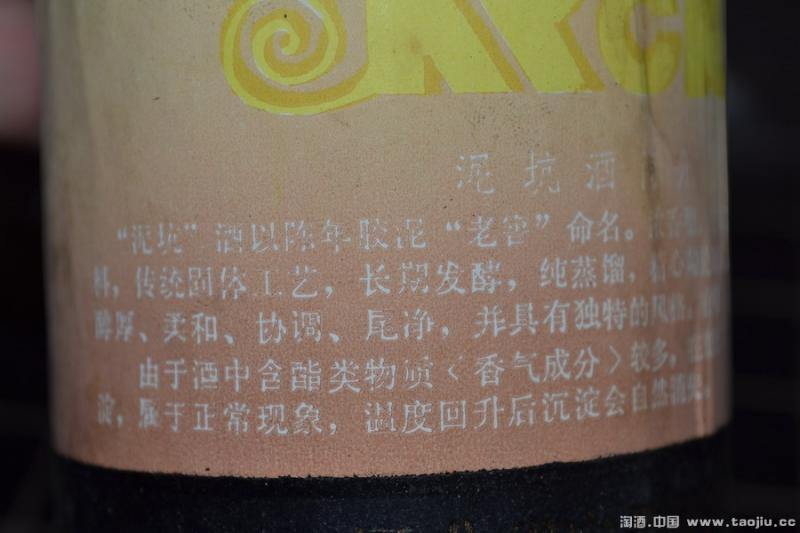 泥坑酒
“泥坑”酒以陈年胶泥“老窖”命名。
料，传统固体工艺，长期发酵，纯蒸馏，
醇厚、柔和、协调、尾净，并具有独特的风格。
由于酒中含酯类物质＜香气成分＞较多，
淀，属于正常现象，温度回升后沉淀会自然消失
淘酒.中国 www.taojiu.cc